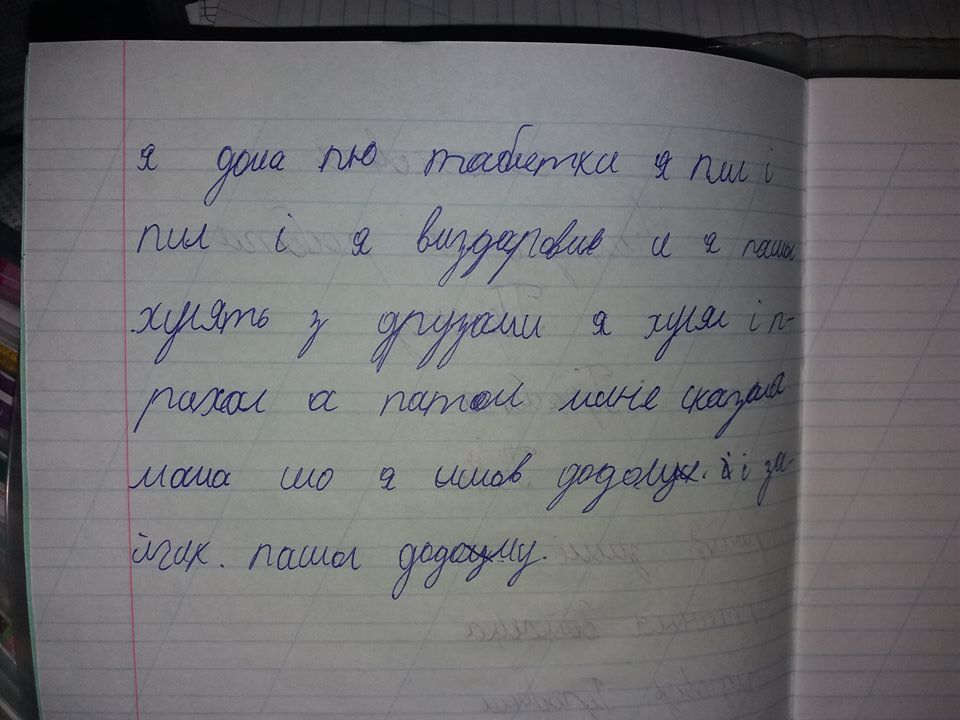 я дома пю таблетки я пил і
пил і я виздаровив и я пашол
хулять з друзами я хулял і п-
рихал а патом мине сказала
мама шо я ишов додому. і за-
йчик. пашол додому.